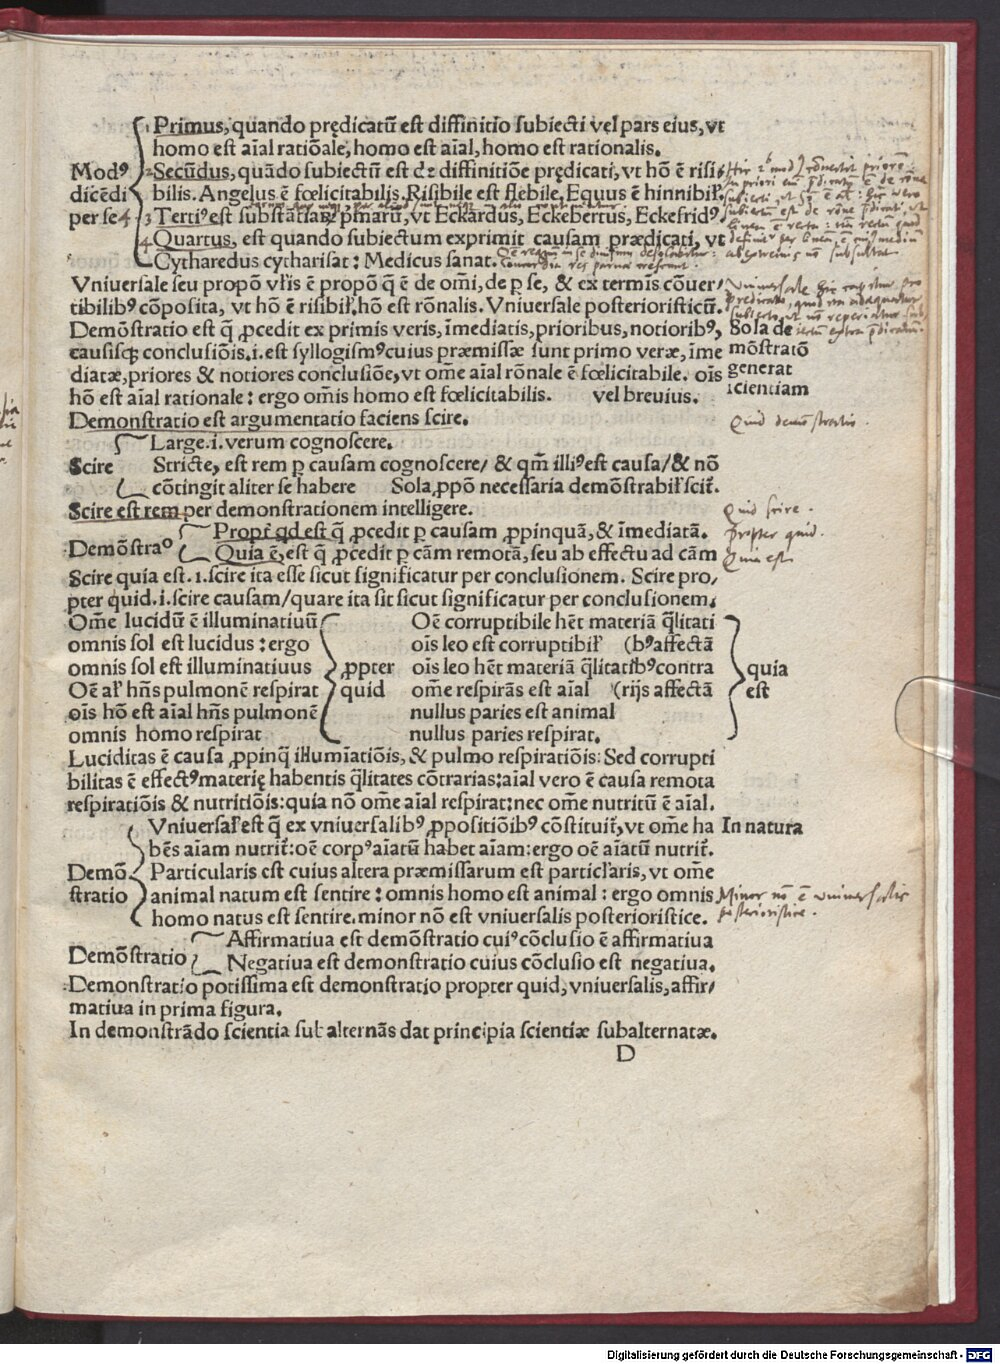 Primus, quando prędicatũ est diffinitio subiecti vel pars eius, vt
homo est aĩal ratiõale, homo est aĩal, homo est rationalis.
Modꝰ
Secũdus, quãdo subiectũ est de diffinitiõe prędicati, vt hõ ẽ risi
dicẽdi
bilis. Angelus ẽ fœlicitabilis. Risibile est flebile, Equus ẽ hinnibil̃
per se 4
3 Tertiꝰ est substãtiaꝝ prĩaruʒ, vt Eckardus, Eckebertus, Eckefridꝰ
4 Quartus, est quando subiectum exprimit causam prædicati, vt
Cytharedus cytharisat: Medicus sanat.
Vniuersale seu propõ vl̃is ẽ propõ q̃ ẽ de om̃i, de p se, & ex termis cõuer/
tibilibꝰ cõposita, vt hõ ẽ risibil̃. hõ est rõnalis. Vniuersale posterioristicũ.
Demõstratio est q̃ ꝓcedit ex primis veris, ĩmediatis, prioribus, notioribꝰ,
Sola de
causisqʒ conclusiõis .i. est syllogismꝰ cuius præmissæ sunt primo veræ, ĩme
mõstratõ
diatæ, priores & notiores conclusiõe, vt om̃e aĩal rõnale ẽ fœlicitabile. oĩs
generat
hõ est aĩal rationale: ergo om̃is homo est fœlicitabilis. vel breuius.
scientiam
Demonstratio est argumentatio faciens scire.
Quid demonstratio.
Large .i. verum cognoscere.
Scire
Stricte, est rem ꝑ causam cognoscere/ & qm̃ illiꝰ est causa/ & nõ
cõtingit aliter se habere Sola ꝓpõ necessaria demõstrabil̃r scit̃.
Scire est rem per demonstrationem intelligere.
Quid scire.
Propt̃ qd est q̃ ꝓcedit ꝑ causam ꝓpinquã, & ĩmediatã.
propter quid.
Demõstraᵒ
Quia ẽ, est q̃ ꝓcedit ꝑ cãm remotã, seu ab effectu ad cãm
Quia est
Scire quia est .i. scire ita esse sicut significatur per conclusionem. Scire pro/
pter quid .i. scire causam/ quare ita sit sicut significatur per conclusionem.
Om̃e lucidũ ẽ illuminatiuũ
omnis sol est lucidus: ergo
omnis sol est illuminatiuus
Oẽ al̃ hñs pulmonẽ respirat
oĩs hõ est aĩal hñs pulmonẽ
omnis homo respirat
ꝓpter
quid
Oẽ corruptibile hẽt materiã q̃litati
oĩs leo est corruptibil̃ (bꝰ affectã
oĩs leo hẽt materiã q̃litatibꝰ contra
om̃e respirãs est aĩal (rijs affectã
nullus paries est animal
nullus paries respirat.
quia
est
Luciditas ẽ causa ꝓpinq̃ illumĩatiõis, & pulmo respiratiõis: Sed corrupti
bilitas ẽ effectꝰ materię habentis q̃litates cõtrarias: aĩal vero ẽ causa remota
respiratiõis & nutritiõis: quia nõ om̃e aĩal respirat: nec om̃e nutritũ ẽ aĩal.
Vniuersal̃ est q̃ ex vniuersalibꝰ ꝓpositiõibꝰ cõstituit̃, vt om̃e ha
In natura
bẽs aĩam nutrit̃: oẽ corpꝰ aĩatũ habet aĩam: ergo oẽ aĩatũ nutrit̃.
Demõ
Particularis est cuius altera præmissarum est particl̃aris, vt om̃e
stratio
animal natum est sentire: omnis homo est animal: ergo omnis
Minor nõ ẽ vniuersalis
homo natus est sentire. minor nõ est vniuersalis posterioristice.
posterioristice.
Demõstratio
Affirmatiua est demõstratio cuiꝰ cõclusio ẽ affirmatiua
Negatiua est demonstratio cuius cõclusio est negatiua.
Demonstratio potissima est demonstratio propter quid, vniuersalis, affir/
matiua in prima figura.
In demonstrãdo scientia subalternãs dat principia scientiæ subalternatæ.
D
Digitalisierung gefördert durch die Deutsche Forschungsgemeinschaft - DFG